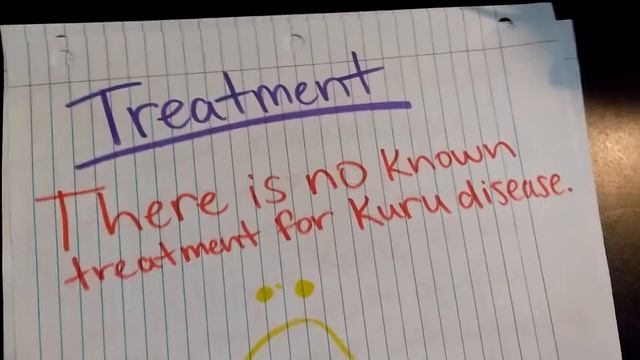 Treatment
There is no known
treatment for Kuru disease.